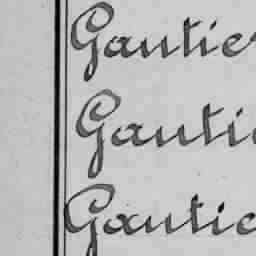 Gautier
Gautie
Gautie